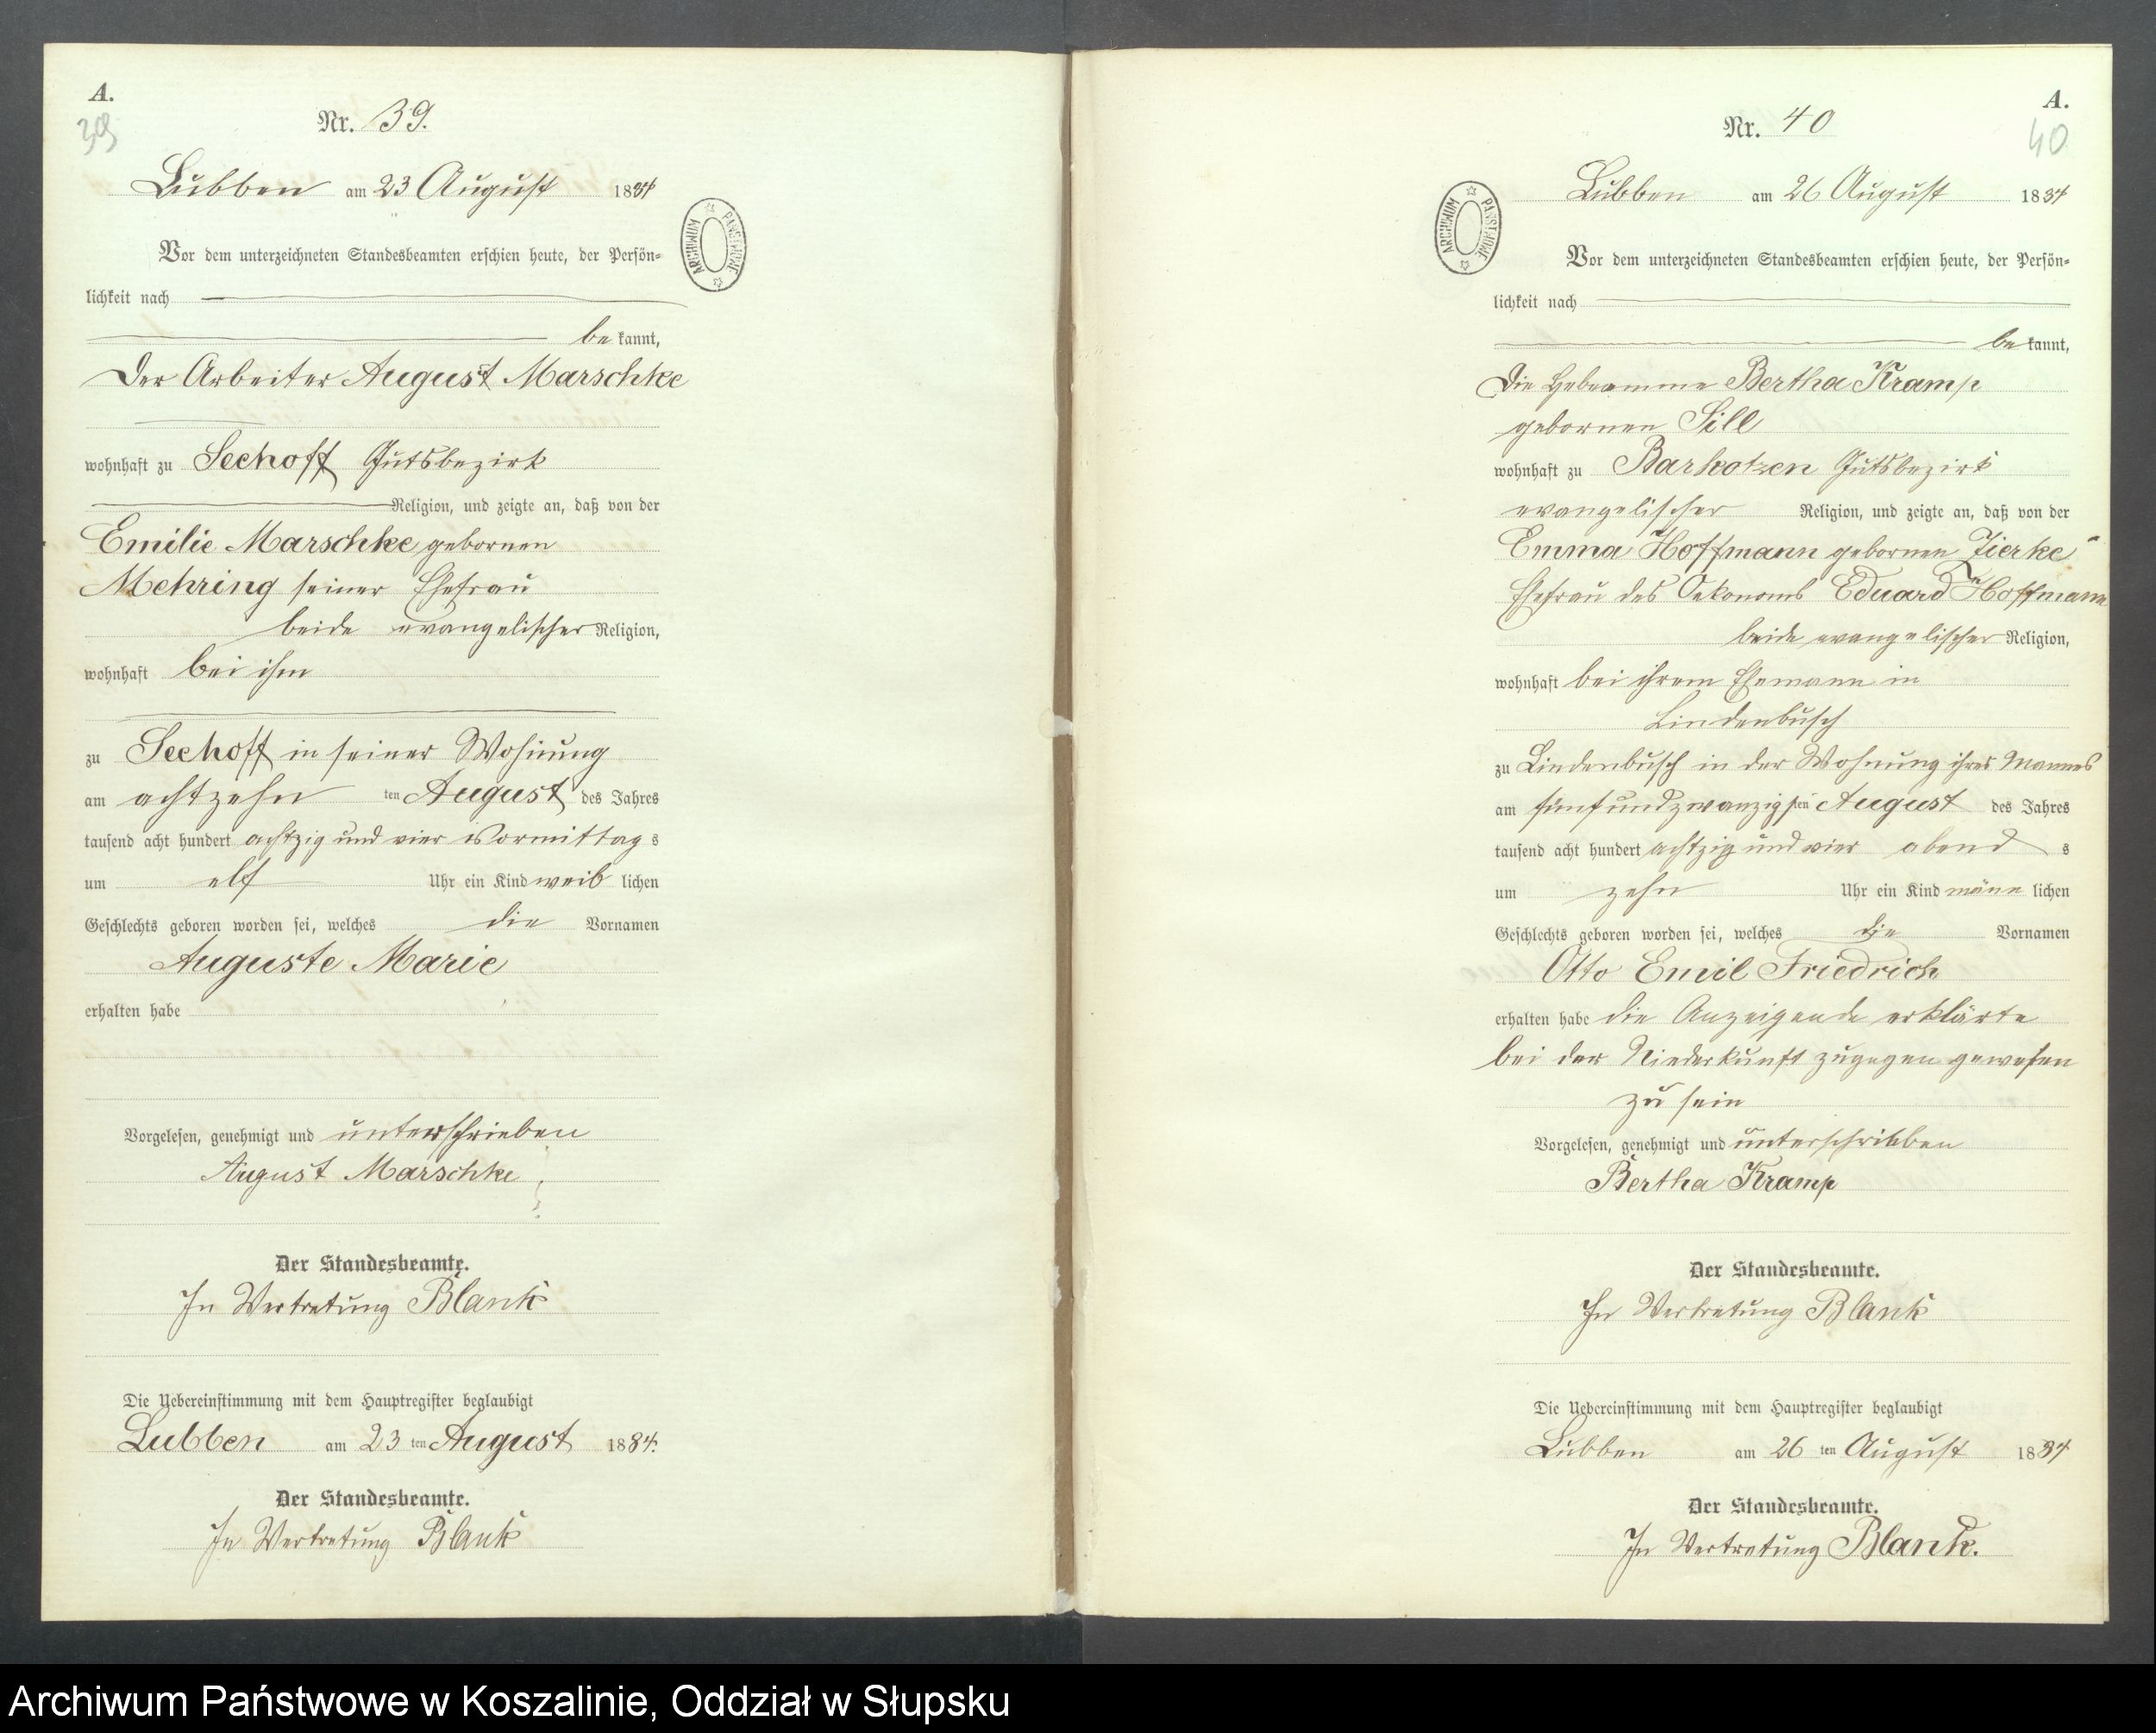 A.
39
Nr. 39.
Lübben am 23 August 1884
ARCHIWUM PAŃSTWOWE
Vor dem unterzeichneten Standesbeamten erschien heute, der Persön-
lichkeit nach
be kannt,
Der Arbeiter August Marschke
wohnhaft zu Seehoff Gutsbezirk
Religion, und zeigte an, daß von der
Emilie Marschke gebornen
Mehring seiner Ehefrau
beide evangelischer Religion,
wohnhaft bei ihm
zu Seehoff in seiner Wohnung
am achtzehn ten August des Jahres
tausend acht hundert achtzig und vier Vormittag s
um elf Uhr ein Kind weib lichen
Geschlechts geboren worden sei, welches die Vornamen
Auguste Marie
erhalten habe
Vorgelesen, genehmigt und unterschrieben
August Marschke
Der Standesbeamte.
In Vertretung Blank
Die Uebereinstimmung mit dem Hauptregister beglaubigt
Lubben am 23 ten August 1884.
Der Standesbeamte.
In Vertretung Blank
A.
40
Nr. 40
Lübben am 26 August 1884
ARCHIWUM PAŃSTWOWE
Vor dem unterzeichneten Standesbeamten erschien heute, der Persön-
lichkeit nach
be kannt,
Die Hebeamme Bertha Kramp
gebornen Sill
wohnhaft zu Barkotzen Gutsbezirk
evangelischer Religion, und zeigte an, daß von der
Emma Hoffmann gebornen Zierke
Ehefrau des Oekonoms Eduard Hoffmann
beide evangelischer Religion,
wohnhaft bei ihrem Ehemann in
Lindenbusch
zu Lindenbusch in der Wohnung ihres Mannes
am fünfundzwanzigsten August des Jahres
tausend acht hundert achtzig und vier abend s
um zehn Uhr ein Kind männ lichen
Geschlechts geboren worden sei, welches die Vornamen
Otto Emil Friedrich
erhalten habe die Anzeigende erklärte
bei der Niederkunft zugegen gewesen
zu sein
Vorgelesen, genehmigt und unterschribben
Bertha Kramp
Der Standesbeamte.
In Vertretung Blank
Die Uebereinstimmung mit dem Hauptregister beglaubigt
Lübben am 26 ten August 1884
Der Standesbeamte.
In Vertretung Blank.
Archiwum Państwowe w Koszalinie, Oddział w Słupsku